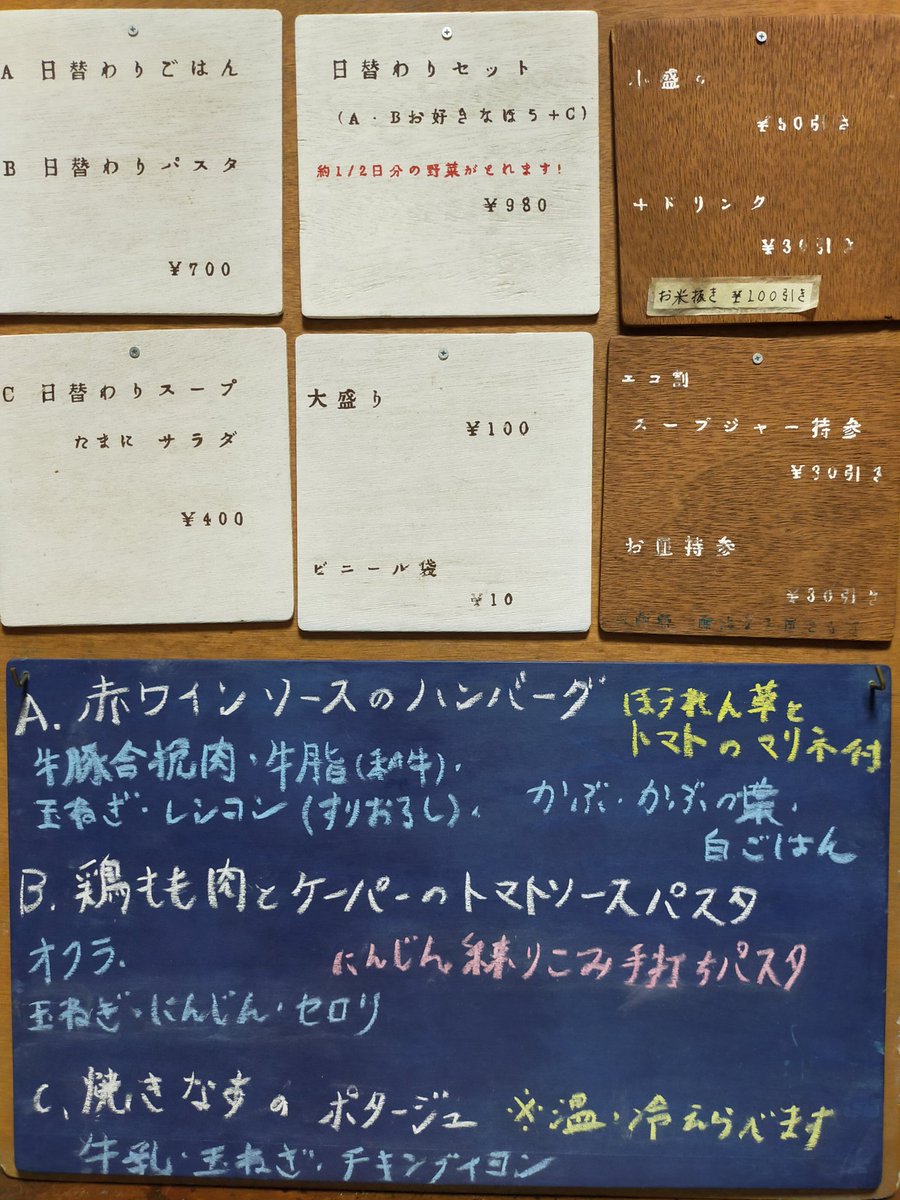 A 日替わりごはん
B 日替わりパスタ
¥700
日替わりセット
(A・Bお好きなほう+C)
約1/2日分の野菜がとれます!
¥980
小盛り
¥50引き
+ドリンク
¥30引き
お米抜き ¥100引き
C 日替わりスープ
たまに サラダ
¥400
大盛り
¥100
ビニール袋
¥10
エコ割
スープジャー持参
¥30引き
お皿持参
¥30引き
A. 赤ワインソースのハンバーグ
ほうれん草と
トマトのマリネ付
牛豚合挽肉・牛脂(和牛).
玉ねぎ・レンコン(すりおろし).
かぶ・かぶの葉.
白ごはん
B. 鶏もも肉とケーパーのトマトソースパスタ
オクラ.
にんじん練りこみ手打ちパスタ
玉ねぎ・にんじん・セロリ
C. 焼きなすの ポタージュ ※温・冷えらべます
牛乳・玉ねぎ・チキンブイヨン